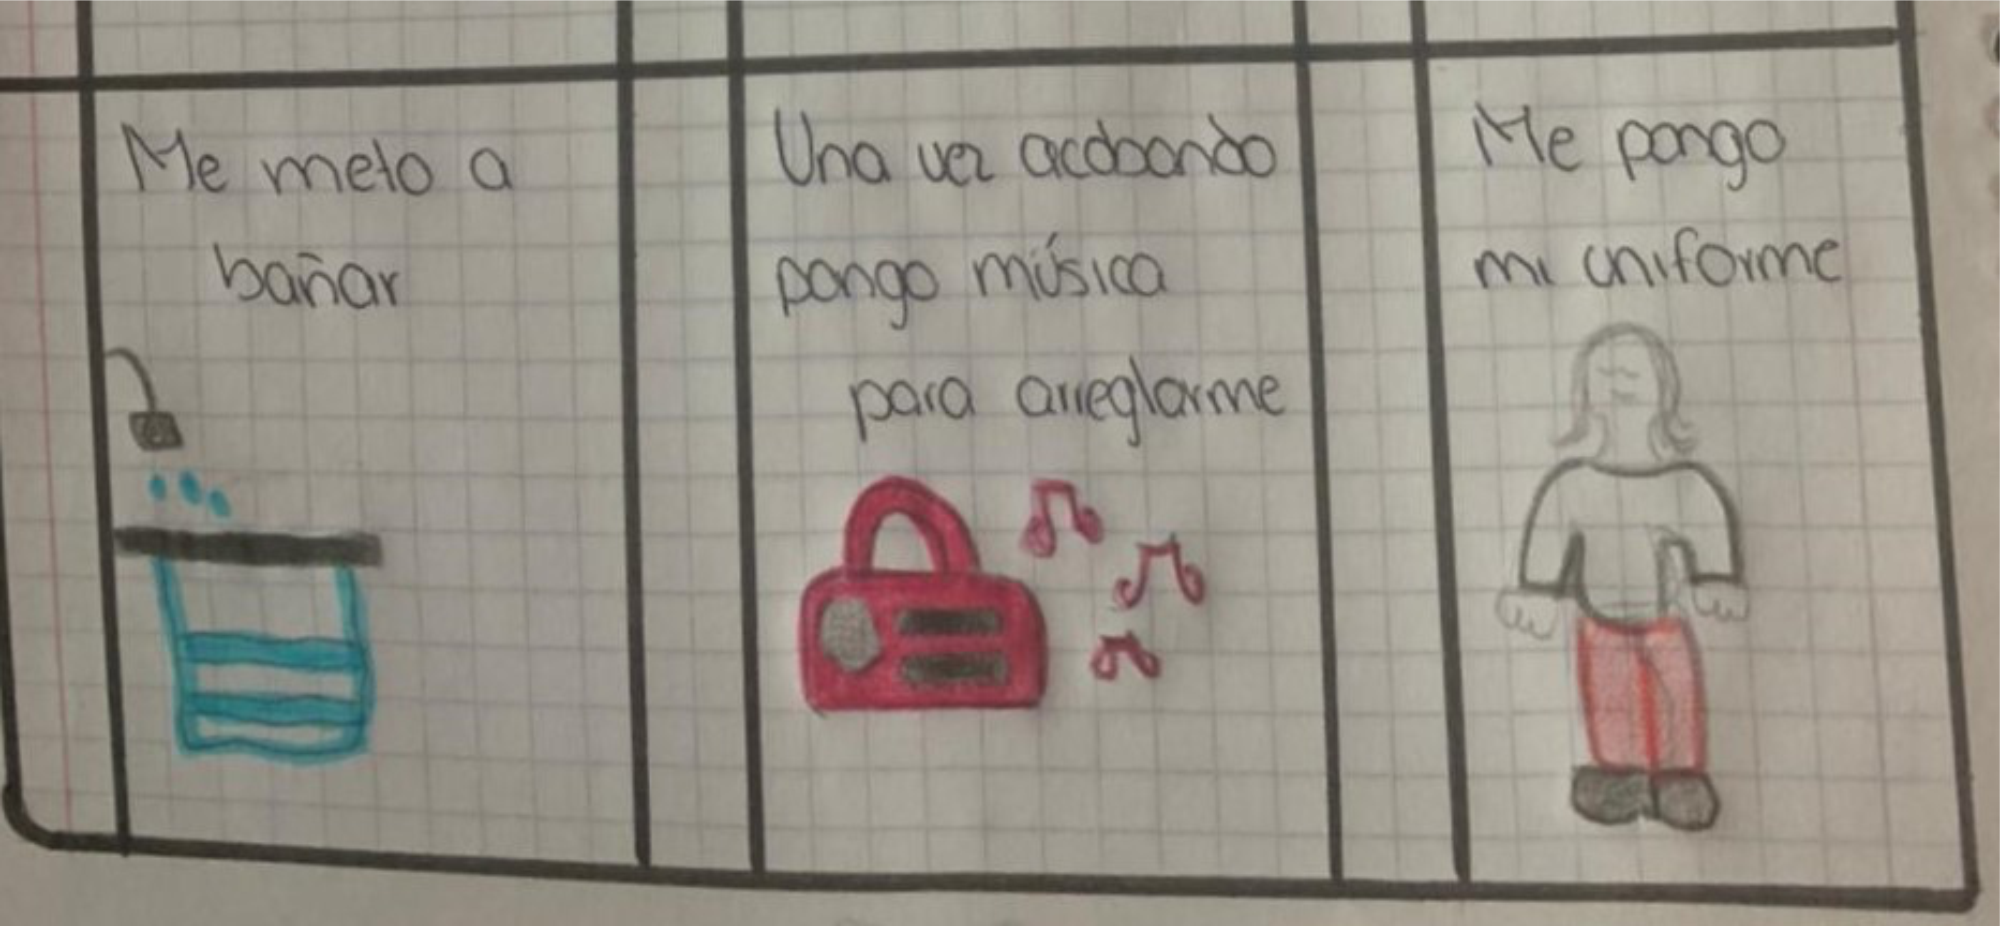 Me meto a
bañar
Una vez acabando
pongo música
para arreglarme
Me pongo
mi uniforme